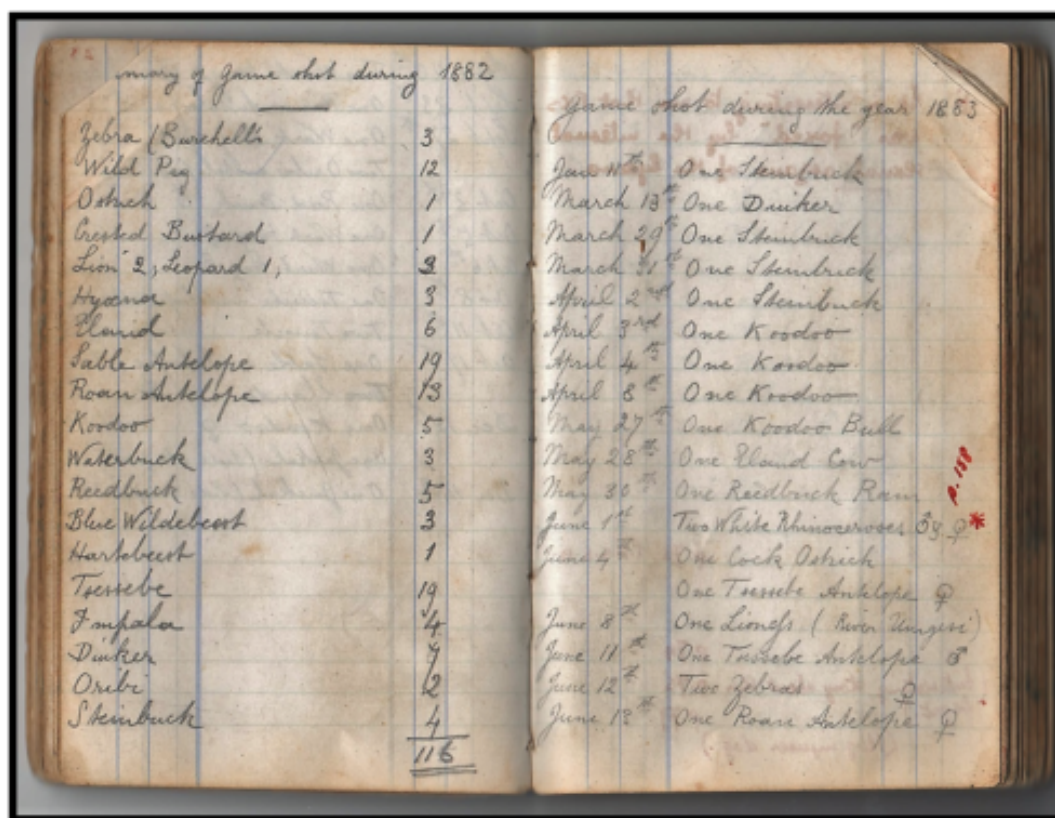 mary of Game shot during 1882
Zebra (Burchell's 3
Wild Pig 12
Ostrich 1
Crested Bustard 1
Lion 2, Leopard 1, 3
Hyæna 3
Eland 6
Sable Antelope 19
Roan Antelope 13
Koodoo 5
Waterbuck 3
Reedbuck 5
Blue Wildebeest 3
Hartebeest 1
Tsessebe 19
Impala 4
Duiker 9
Oribi 2
Steinbuck 4
116
Game shot during the year 1883
Jan 11th One Steinbuck
March 13th One Duiker
March 29th One Steinbuck
March 31st One Steinbuck
April 2nd One Steinbuck
April 3rd One Koodoo
April 4th One Koodoo
April 8th One Koodoo
May 27th One Koodoo Bull
May 28th One Eland Cow
May 30th One Reedbuck Ram
p. 158
June 1st Two White Rhinoceroses ♂ & ♀ *
June 4th One Cock Ostrich
One Tsessebe Antelope ♀
June 8th One Lioness (River Umgesi)
June 11th One Tsessebe Antelope ♂
June 12th Two Zebras ♀
June 13th One Roan Antelope ♀